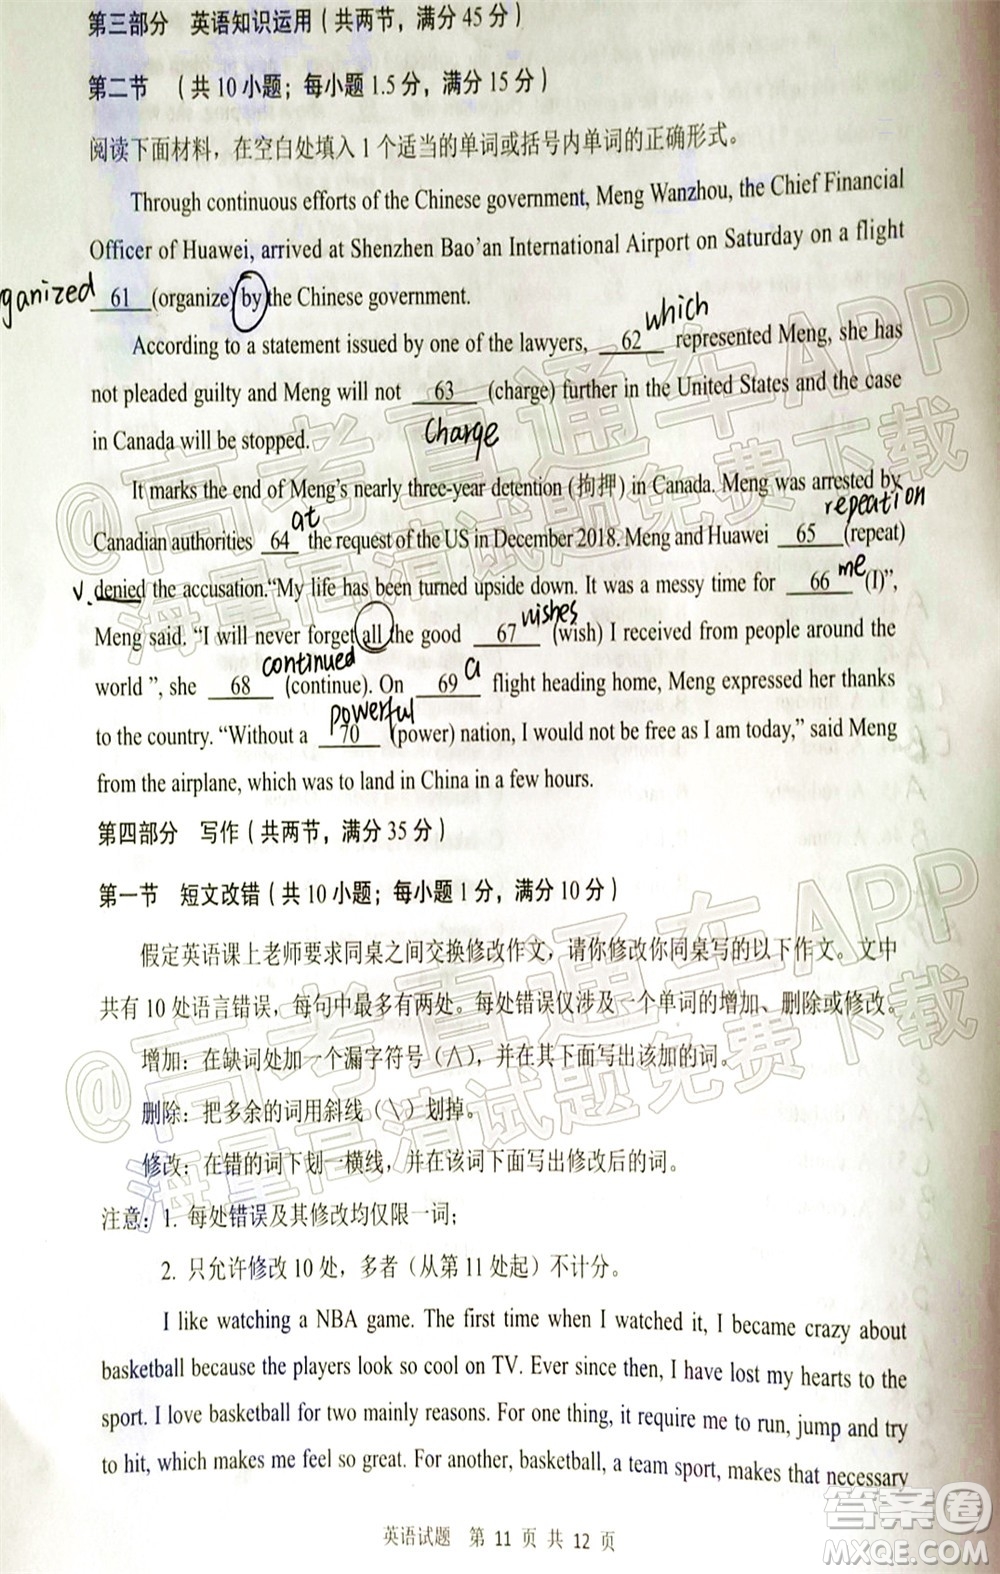 第三部分 英语知识运用（共两节，满分 45 分）
第二节 （共 10 小题；每小题 1.5 分，满分 15 分）
阅读下面材料，在空白处填入 1 个适当的单词或括号内单词的正确形式。
Through continuous efforts of the Chinese government, Meng Wanzhou, the Chief Financial
Officer of Huawei, arrived at Shenzhen Bao'an International Airport on Saturday on a flight
ganized
61 (organize) by the Chinese government.
which
According to a statement issued by one of the lawyers, 62 represented Meng, she has
not pleaded guilty and Meng will not 63 (charge) further in the United States and the case
Charge
in Canada will be stopped.
It marks the end of Meng's nearly three-year detention (拘押) in Canada. Meng was arrested by
at
repeation
Canadian authorities 64 the request of the US in December 2018. Meng and Huawei 65 (repeat)
me
v. denied the accusation.“My life has been turned upside down. It was a messy time for 66 (I)”,
wishes
Meng said. “I will never forget all the good 67 (wish) I received from people around the
continued
a
world ”, she 68 (continue). On 69 flight heading home, Meng expressed her thanks
powerful
to the country. “Without a 70 (power) nation, I would not be free as I am today,” said Meng
from the airplane, which was to land in China in a few hours.
第四部分 写作（共两节，满分 35 分）
第一节 短文改错（共 10 小题；每小题 1 分，满分 10 分）
假定英语课上老师要求同桌之间交换修改作文，请你修改你同桌写的以下作文。文中
共有 10 处语言错误，每句中最多有两处。每处错误仅涉及一个单词的增加、删除或修改。
增加：在缺词处加一个漏字符号（∧），并在其下面写出该加的词。
删除：把多余的词用斜线（\）划掉。
修改：在错的词下划一横线，并在该词下面写出修改后的词。
注意：1. 每处错误及其修改均仅限一词；
2. 只允许修改 10 处，多者（从第 11 处起）不计分。
I like watching a NBA game. The first time when I watched it, I became crazy about
basketball because the players look so cool on TV. Ever since then, I have lost my hearts to the
sport. I love basketball for two mainly reasons. For one thing, it require me to run, jump and try
to hit, which makes me feel so great. For another, basketball, a team sport, makes that necessary
英语试题 第 11 页 共 12 页
@高考直通车APP
海量高清试题免费下载
@高考直通车APP
海量高清试题免费下载
答案圈
MXQE.COM